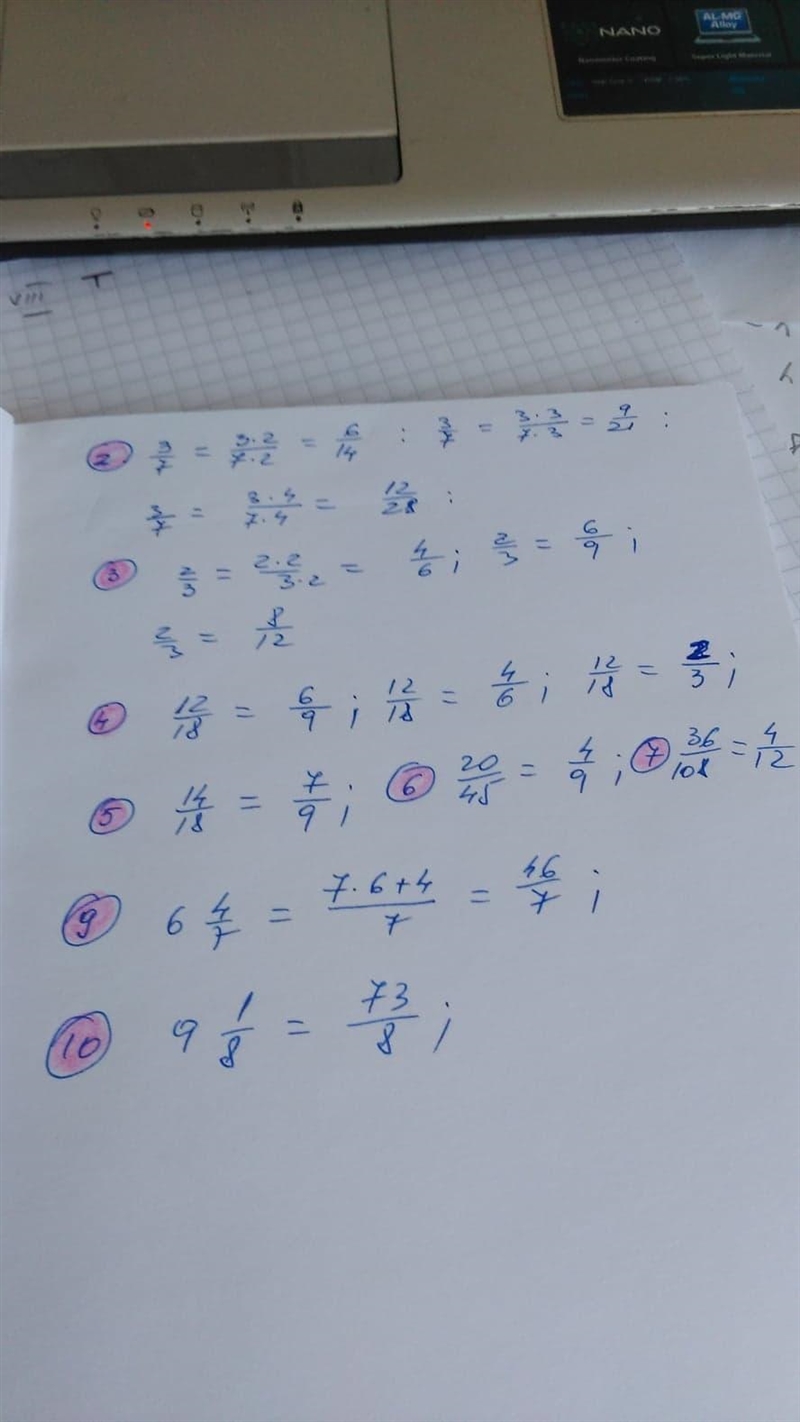 NANO
AL-MG
Alloy
Super Light Material
VIII T
2 3/7 = 3·2/7·2 = 6/14 : 3/7 = 3·3/7·3 = 9/21 :
3/7 = 3·4/7·4 = 12/28 :
3 2/3 = 2·2/3·2 = 4/6 ; 2/3 = 6/9 ;
2/3 = 8/12
4 12/18 = 6/9 ; 12/18 = 4/6 ; 12/18 = 2/3 ;
5 14/18 = 7/9 ; 6 20/45 = 4/9 ; 7 36/108 = 4/12
9 6 4/7 = 7·6+4/7 = 46/7 ;
10 9 1/8 = 73/8 ;